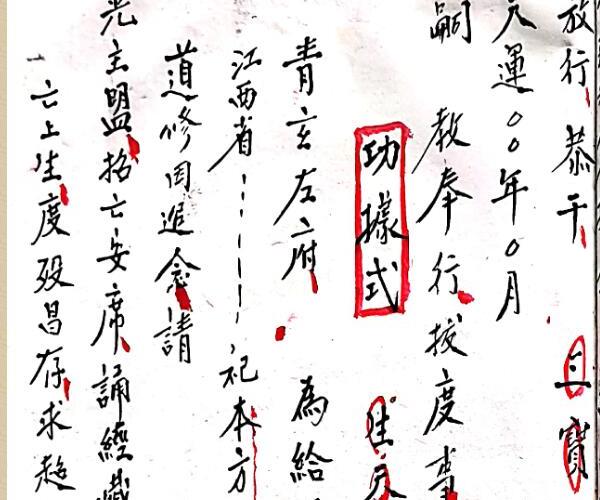 放行恭干三寶
天運〇〇年〇月
嗣教奉行拔度事
功據式
青玄左府為給
江西省祀本方
道修因進念請
光主盟招亡安席誦經
亡上生度殁昌存求超